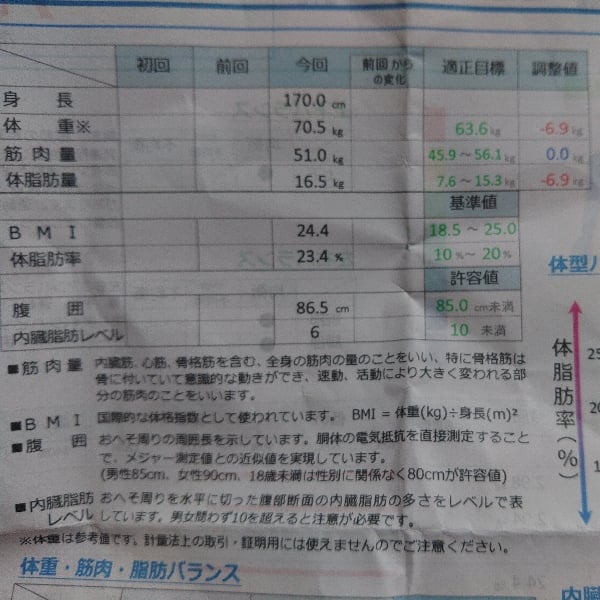 初回 前回 今回 前回から の変化 適正目標 調整値
身長 170.0 cm
体重※ 70.5 kg 63.6 kg -6.9 kg
筋肉量 51.0 kg 45.9～56.1 kg 0.0 kg
体脂肪量 16.5 kg 7.6～15.3 kg -6.9 kg
基準値
BMI 24.4 18.5～25.0
体脂肪率 23.4 % 10%～20%
許容値
腹囲 86.5 cm 85.0 cm未満
内臓脂肪レベル 6 10 未満
■筋肉量 内臓筋、心筋、骨格筋を含む、全身の筋肉の量のことをいい、特に骨格筋は
骨に付いていて意識的な動きができ、速動、活動により大きく変われる部
分の筋肉のことをいいます。
■BMI 国際的な体格指数として使われています。 BMI = 体重(kg)÷身長(m)²
■腹囲 おへそ周りの周囲長を示しています。胴体の電気抵抗を直接測定すること
で、メジャー測定値との近似値を実現しています。
(男性85cm、女性90cm、18歳未満は性別に関係なく80cmが許容値)
■内臓脂肪 おへそ周りを水平に切った腹部断面の内臓脂肪の多さをレベルで表
レベル しています。男女問わず10を超えると注意が必要です。
※体重は参考値です。計量法上の取引・証明用には使えませんのでご注意ください。
体重・筋肉・脂肪バランス
体型
体脂肪率(%)
内臓